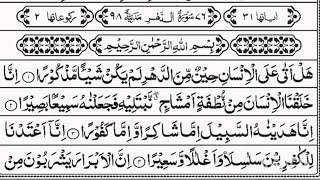 اٰیاتها ٣١ ٧٦ سُوْرَةُ الدَّهْرِ مَدَنِيَّةٌ ٩٨ رکوعاتها ٢
بِسْمِ اللّٰهِ الرَّحْمٰنِ الرَّحِيْمِ
هَلْ اَتٰى عَلَى الْاِنْسَانِ حِيْنٌ مِّنَ الدَّهْرِ لَمْ يَكُنْ شَيْـًٔا مَّذْكُوْرًا ١ اِنَّا
خَلَقْنَا الْاِنْسَانَ مِنْ نُّطْفَةٍ اَمْشَاجٍ نَّبْتَلِيْهِ فَجَعَلْنٰهُ سَمِيْعًۢا بَصِيْرًا ٢
اِنَّا هَدَيْنٰهُ السَّبِيْلَ اِمَّا شَاكِرًا وَّاِمَّا كَفُوْرًا ٣ اِنَّاۤ اَعْتَدْنَا
لِلْكٰفِرِيْنَ سَلٰسِلَا۟ وَاَغْلٰلًا وَّسَعِيْرًا ٤ اِنَّ الْاَبْرَارَ يَشْرَبُوْنَ مِنْ